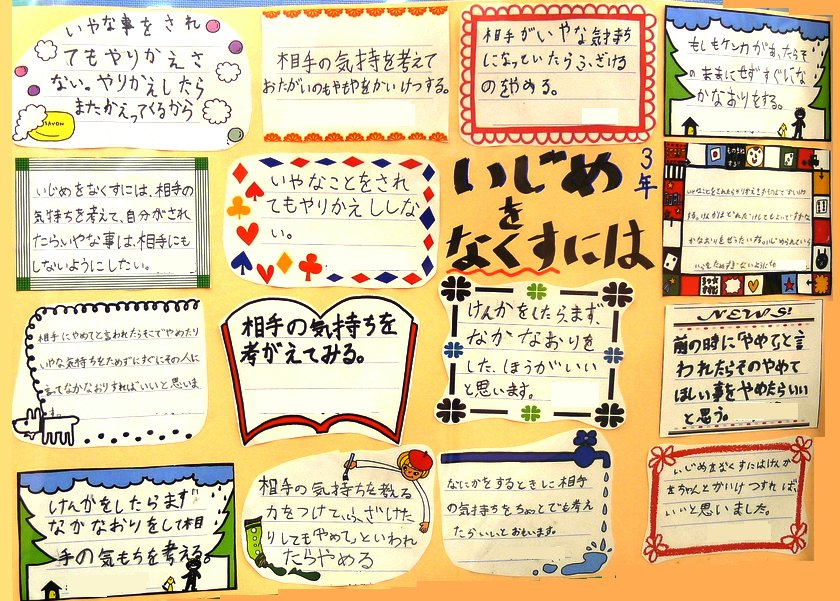 いやな事をされ
てもやりかえさ
ない。やりかえしたら
またかえってくるから
SAVON
相手の気持を考えて
おたがいのもやもやをかいけつする。
相手がいやな気持ち
になっといたらふざける
のをやめる。
もしもケンカがあったらそ
のままにせずすぐにな
かなおりをする。
いじめをなくすには、相手の
気持ちを考えて、自分がされ
たらいやな事は、相手にも
しないようにしたい。
いやなことをされ
てもやりかえししな
い。
3年
いじめ
を
なくすには
相手にやめてと言われたらそこでやめたり
いやな気持ちをためずにすぐにその人に
言てなかなおりすればいいと思いま
す。
相手の気持ちを
考がえてみる。
けんかをしたら、まず、
なかなおりを
した、ほうがいい
と思います。
NEWS!
前の時に「やめて」と言
われたらそのやめて
ほしい事をやめたらいい
と思う。
けんかをしたらまず
なかなおりをして相
手の気もちを考える。
相手の気持ちを考える
力をつけて、ふざけた
りしても「やめて」といわれ
たらやめる
なにかをするときに相手
の気持ちをちょっとでも考え
たらいいとおもいます。
いじめをなくすにはけんか
をちゃんとかいけつすれば、
いいと思いました。